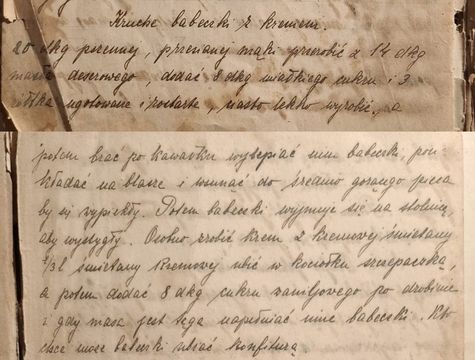 Kruche babeczki z kremem.
20 dkg pszennej, przesianej mąki przerobić z 14 dkg
masła deserowego, dodać 8 dkg miałkiego cukru i 3
żółtka ugotowane i roztarte, ciasto lekko wyrobić, a
potem brać po kawałku wylepiać nim babeczki, pou-
kładać na blasze i wsunąć do średnio gorącego pieca
by się wypiekły. Potem babeczki wyjmuje się na stolnicę,
aby wystygły. Osobno zrobić krem z kremowej śmietany
3/8 l śmietany kremowej ubić w kociołku trzepaczką,
a potem dodać 8 dkg cukru waniljowego po drobinie
i gdy masa jest tęga napełniać nią babeczki. Kto
chce może babeczki ubrać konfiturą.